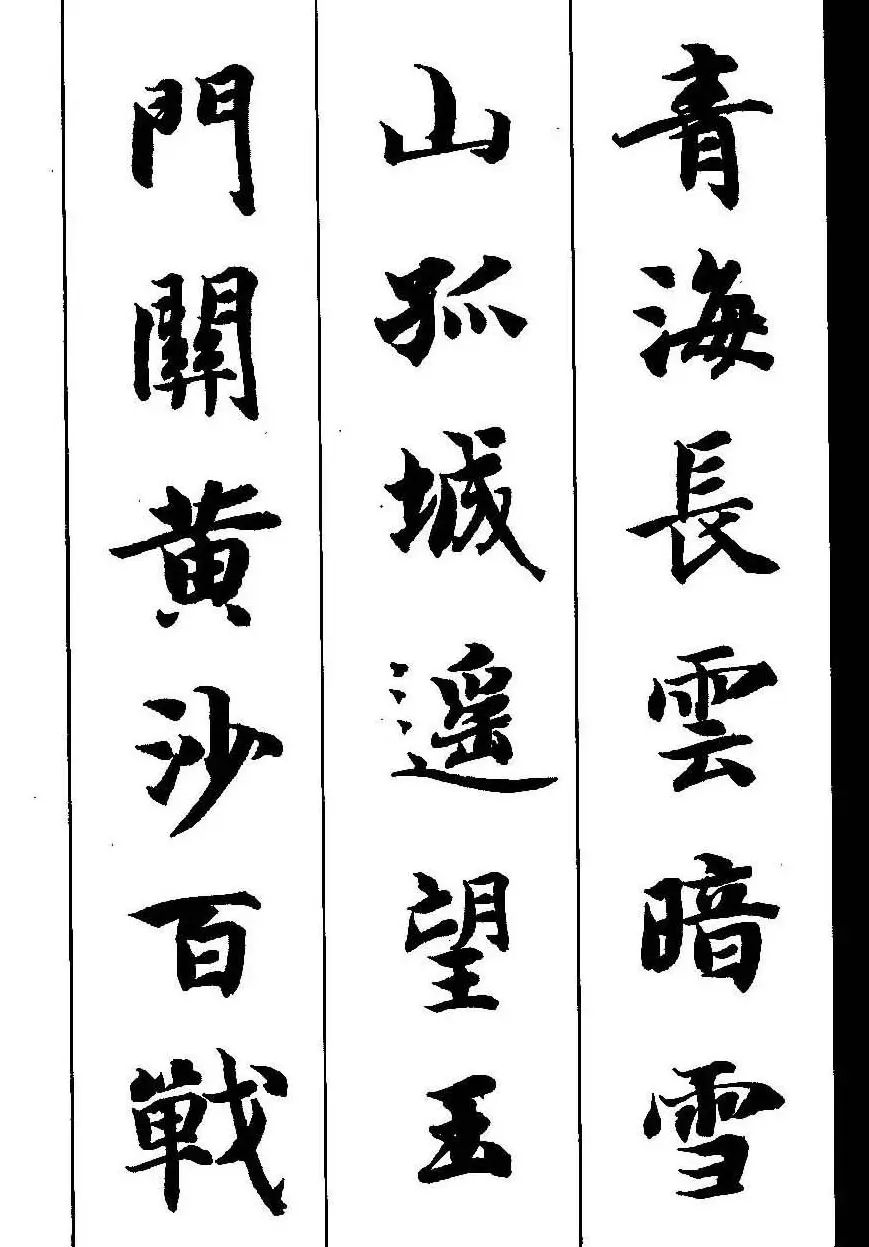 青海長雲暗雪
山孤城遥望玉
門關黄沙百戦